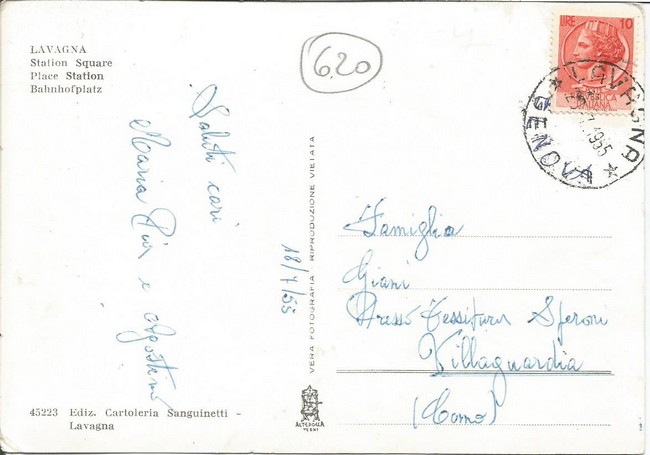 LAVAGNA
Station Square
Place Station
Bahnhofplatz
6.20
LIRE 10
REPUBBLICA
ITALIANA
LAVAGNA
GENOVA
1955
Saluti cari
Maria Pia e Agostino
18/7/55
VERA FOTOGRAFIA RIPRODUZIONE VIETATA
Famiglia
Giani
Presso Tessitura Speroni
Villaguardia
(Como)
ALTEROCCA
TERNI
45223 Ediz. Cartoleria Sanguinetti -
Lavagna